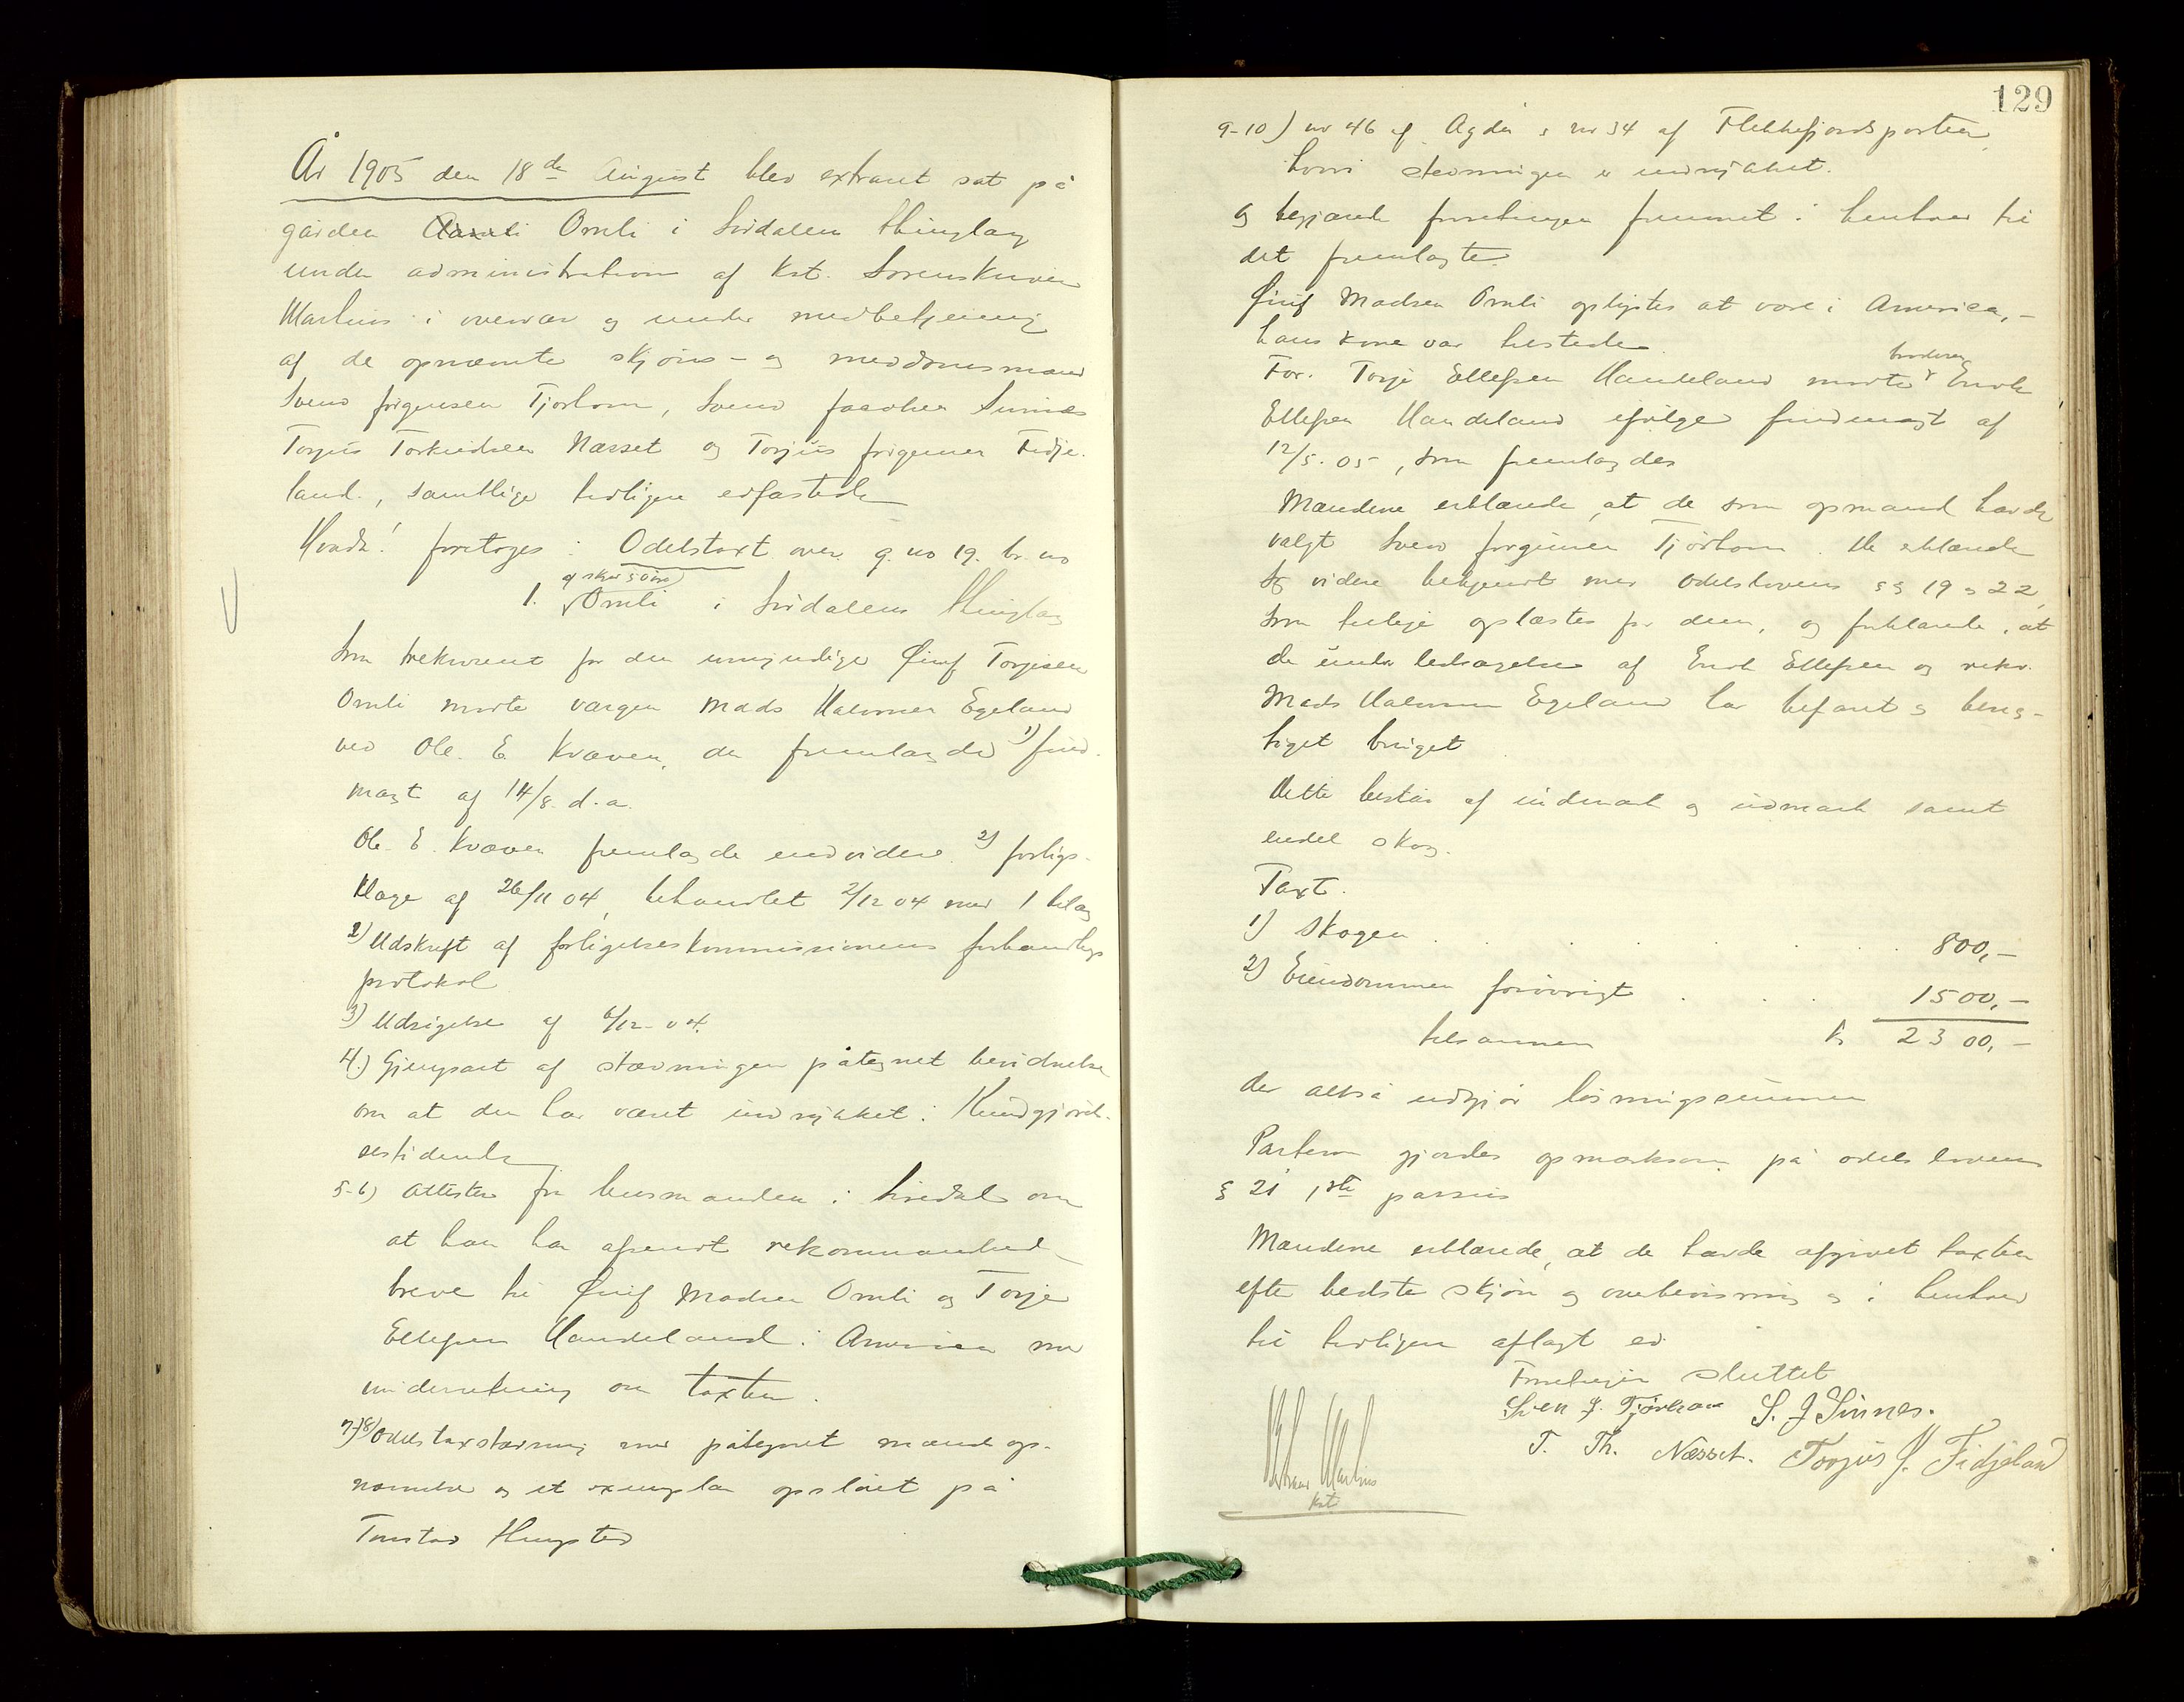 År 1905 den 18de August blev extraret sat på
gården Aamli Omli i Sirdalen thinglag
under administration af kst. Sorenskriver
Martius i overvær og under medbetjening
af de opnævnte skjøns- og meddomsmænd
Svend Jørgensen Tjorhom, Svend Jaachen Sinnes
Torjus Torkildsen Næsset og Torjus Jørgensen Fidje-
land, samtlige tidligere edfæstede
Hvada! foretoges: Odelstaxt over g. no 19. br. no
1. Omli i Sirdalens thinglag
af skyld 50 øre
Som rekvirent for den umyndige Omli Torjesen
Omli mødte værgen Mads Halvorsen Egeland
ved Ole E. Kvæven, der fremlagde 1) fuld-
magt af 14/8. d.a.
Ole E. Kvæven fremlagde endvidere 2) forligs-
klage af 26/11 04, behandlet 2/12 04 med 1 bilag
2) Udskrift af forligelseskommissionens forhandlings
protokol
3) Udsigelse af 6/12-04.
4.) Gjenpart af stævningen påtegnet bevidnelse
om at den har været indrykket i Kundgjørel-
sestidende
5-6) Attester fra lensmanden i Siredal om
at han har afsendt rekommanderet
breve til Madsen Omli og Torje
Ellefsen Handeland i America med
underretning om taxten.
7-8) Odelstaxstævning med påtegnet mænds op-
nævnelse og et exemplar opslået på
Tonstad thingsted
129
9-10) nr 46 af Agder og nr 34 af Flekkefjordsposten,
hvori stevningen er indrykket.
og begjærede forretningen fremmet i henhold til
det fremlagte.
Madsen Omli oplystes at være i America,-
hans kone var tilstede.
For Torje Ellefsen Handeland mødte broderen Enok
Ellefsen Handeland ifølge fuldmagt af
12/5. 05, som fremlagdes
Mændene erklærede, at de som opmand havde
valgt Svend Jørgensen Tjørhom. De erklærede
sig videre bekjendt med odelslovens §§ 19 og 22,
som tillige oplæstes for dem, og forklarede, at
de under ledsagelse af Enok Ellefsen og rekv.
Mads Halvorsen Egeland har befaret og besig-
tiget bruget
Dette består af indmark og udmark samt
endel skog.
Taxt.
1) Skogen . . . . . . 800,-
2) Eiendommen forøvrigt . . . 1500,-
tilsammen kr 2300,-
der altså udgjør løsningssummen
Parterne gjordes opmærksom på odelslovens
§ 21 1ste passus
Mændene erklærede, at de havde afgivet taxten
efter bedste skjøn og overbevisning og i henhold
til tidligere aflagt ed.
Forretningen sluttet
Sven J. Tjørhom S. J Sinnes.
T. Th. Næsset. Torjus J. Fidjeland
Martius
kst.